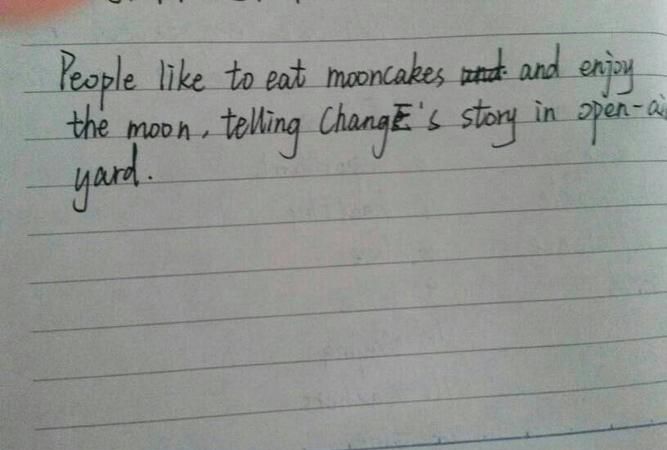 People like to eat mooncakes and enjoy
the moon, telling ChangE's story in open-ai
yard.